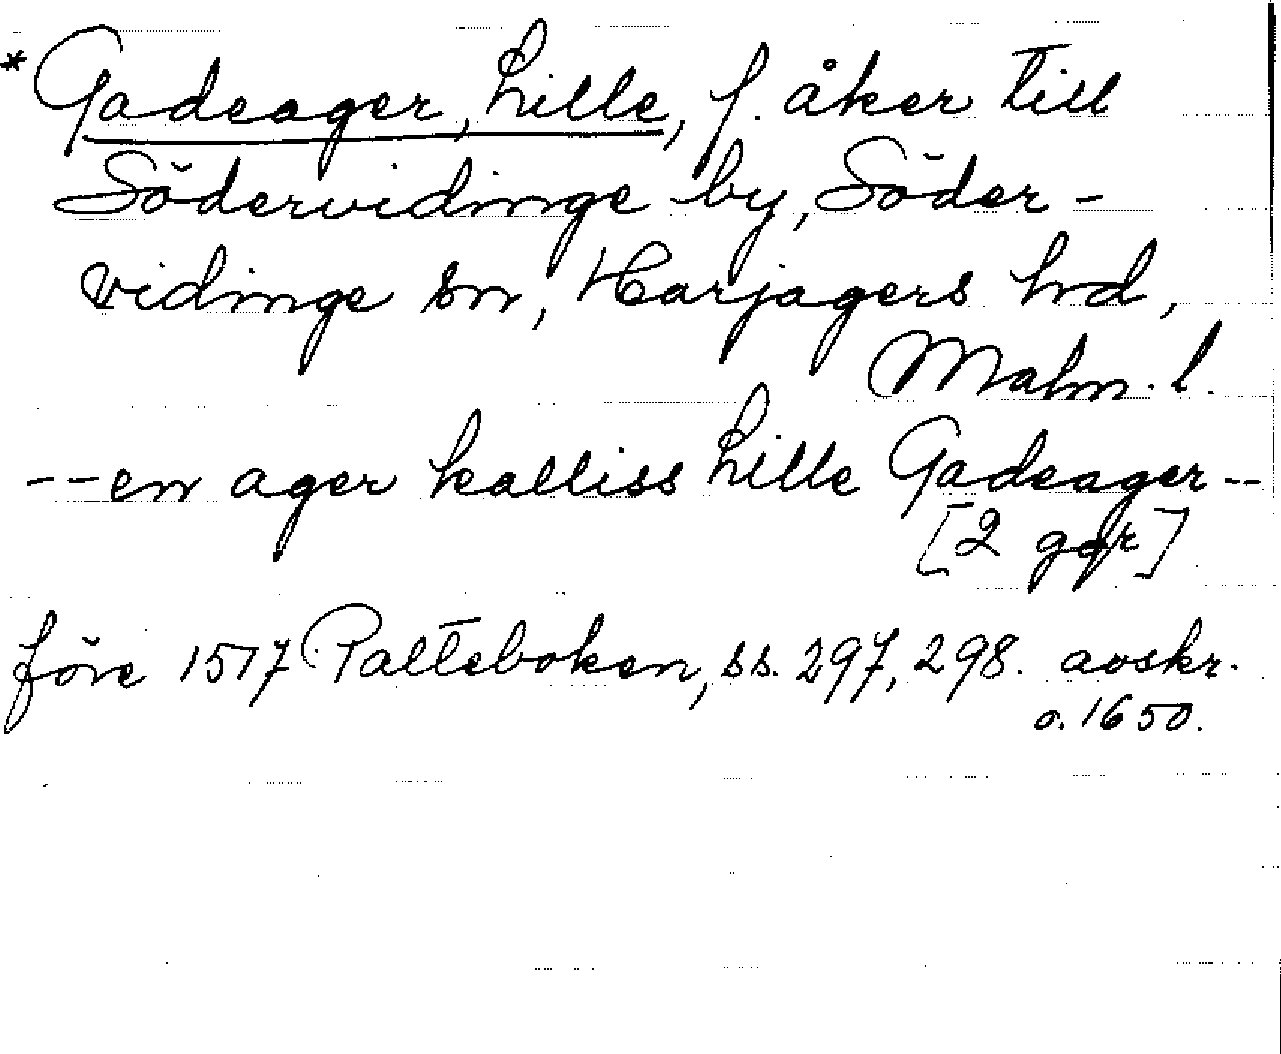 * Gadeager, Lille, f. åker till
Södervidinge by, Söder-
vidinge sn, Harjagers hd,
Malm. l.
--en ager kalliss Lille Gadeager--
[2 ggr]
före 1517 Palteboken, ss. 297, 298. avskr.
o. 1650.